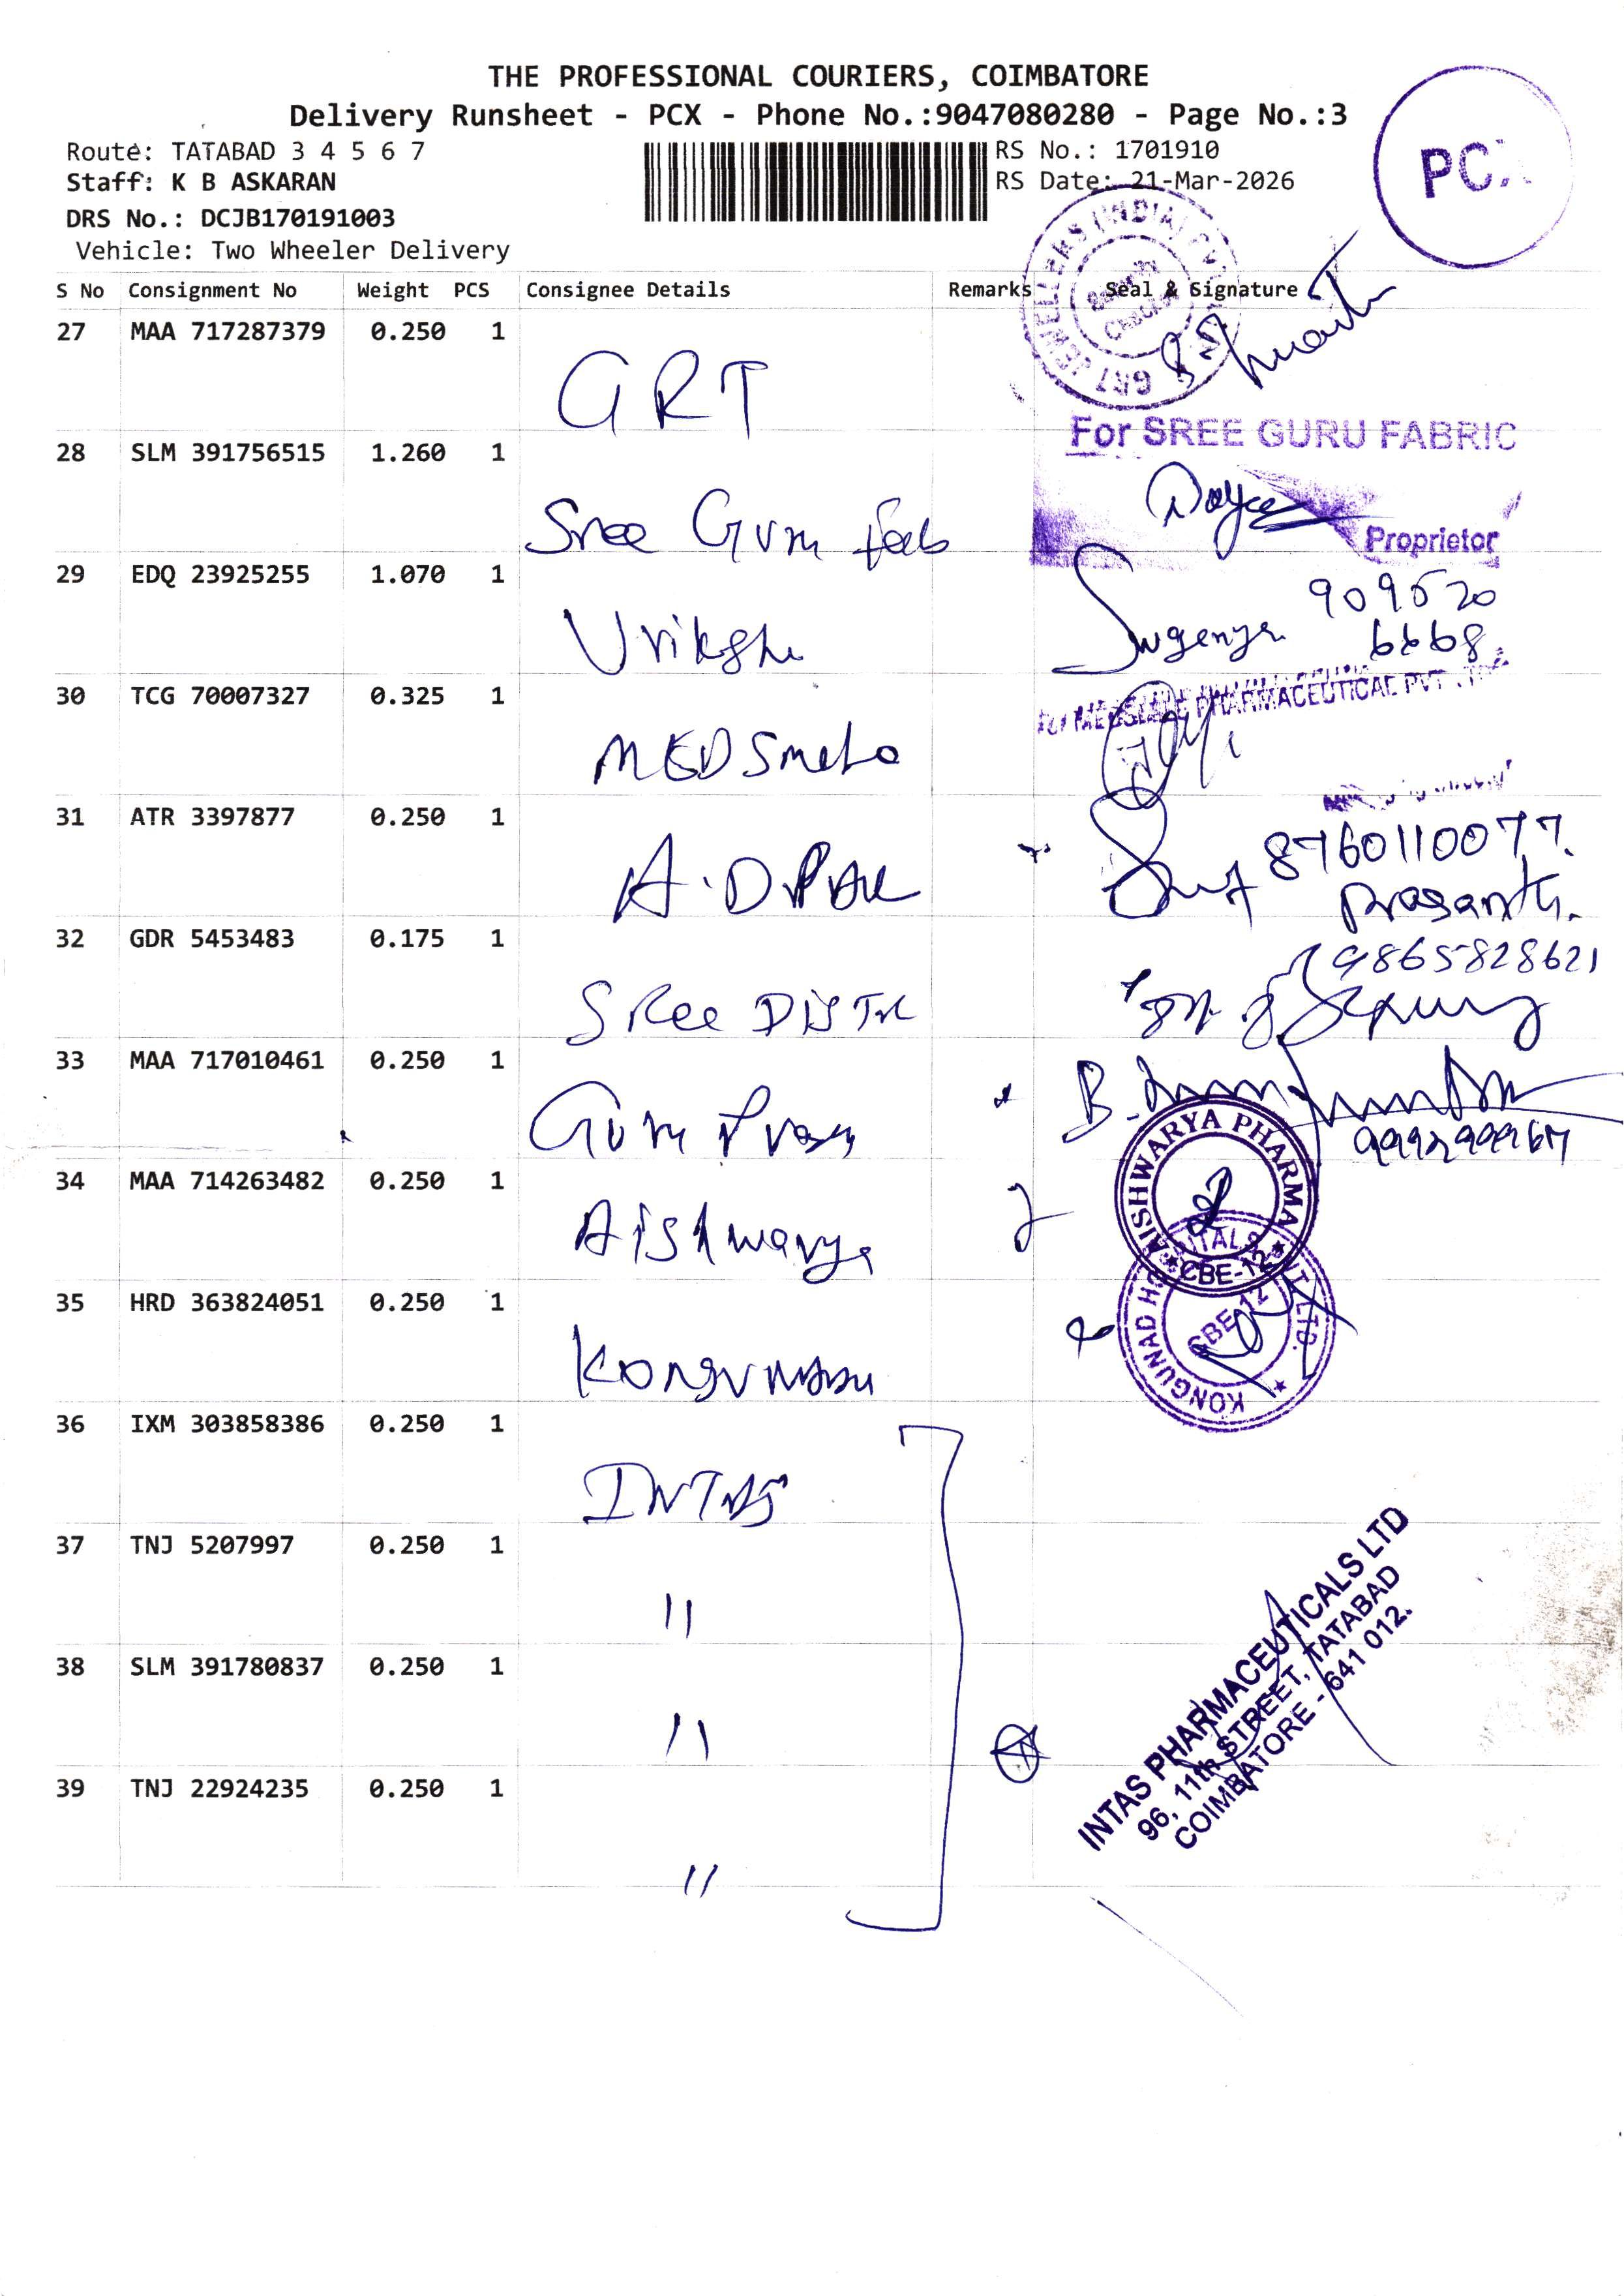 THE PROFESSIONAL COURIERS, COIMBATORE
Delivery Runsheet - PCX - Phone No.:9047080280 - Page No.:3
Route: TATABAD 3 4 5 6 7
RS No.: 1701910
Staff: K B ASKARAN
RS Date: 21-Mar-2026
DRS No.: DCJB170191003
Vehicle: Two Wheeler Delivery
S No Consignment No Weight PCS Consignee Details Remarks Seal & Signature
GRT JEWELLERS (INDIA) PVT
27 MAA 717287379 0.250 1
GRT
For SREE GURU FABRIC
28 SLM 391756515 1.260 1
Sree Guru
Proprietor
29 EDQ 23925255 1.070 1
Vriksha
Sugenya 909520
6668
30 TCG 70007327 0.325 1
PHARMACEUTICAL PVT
31 ATR 3397877 0.250 1
8760110077.
A.D
Prasanth.
32 GDR 5453483 0.175 1
9865828621
Sree
33 MAA 717010461 0.250 1
Guru
34 MAA 714263482 0.250 1
Aishwarya
AISHWARYA PHARMA
CBE-12
35 HRD 363824051 0.250 1
KONGUNAD HOSPITALS LTD.
CBE-12
36 IXM 303858386 0.250 1
INTAS
37 TNJ 5207997 0.250 1
"
38 SLM 391780837 0.250 1
"
39 TNJ 22924235 0.250 1
"
INTAS PHARMACEUTICALS LTD
96, 11th STREET, TATABAD
COIMBATORE - 641 012.